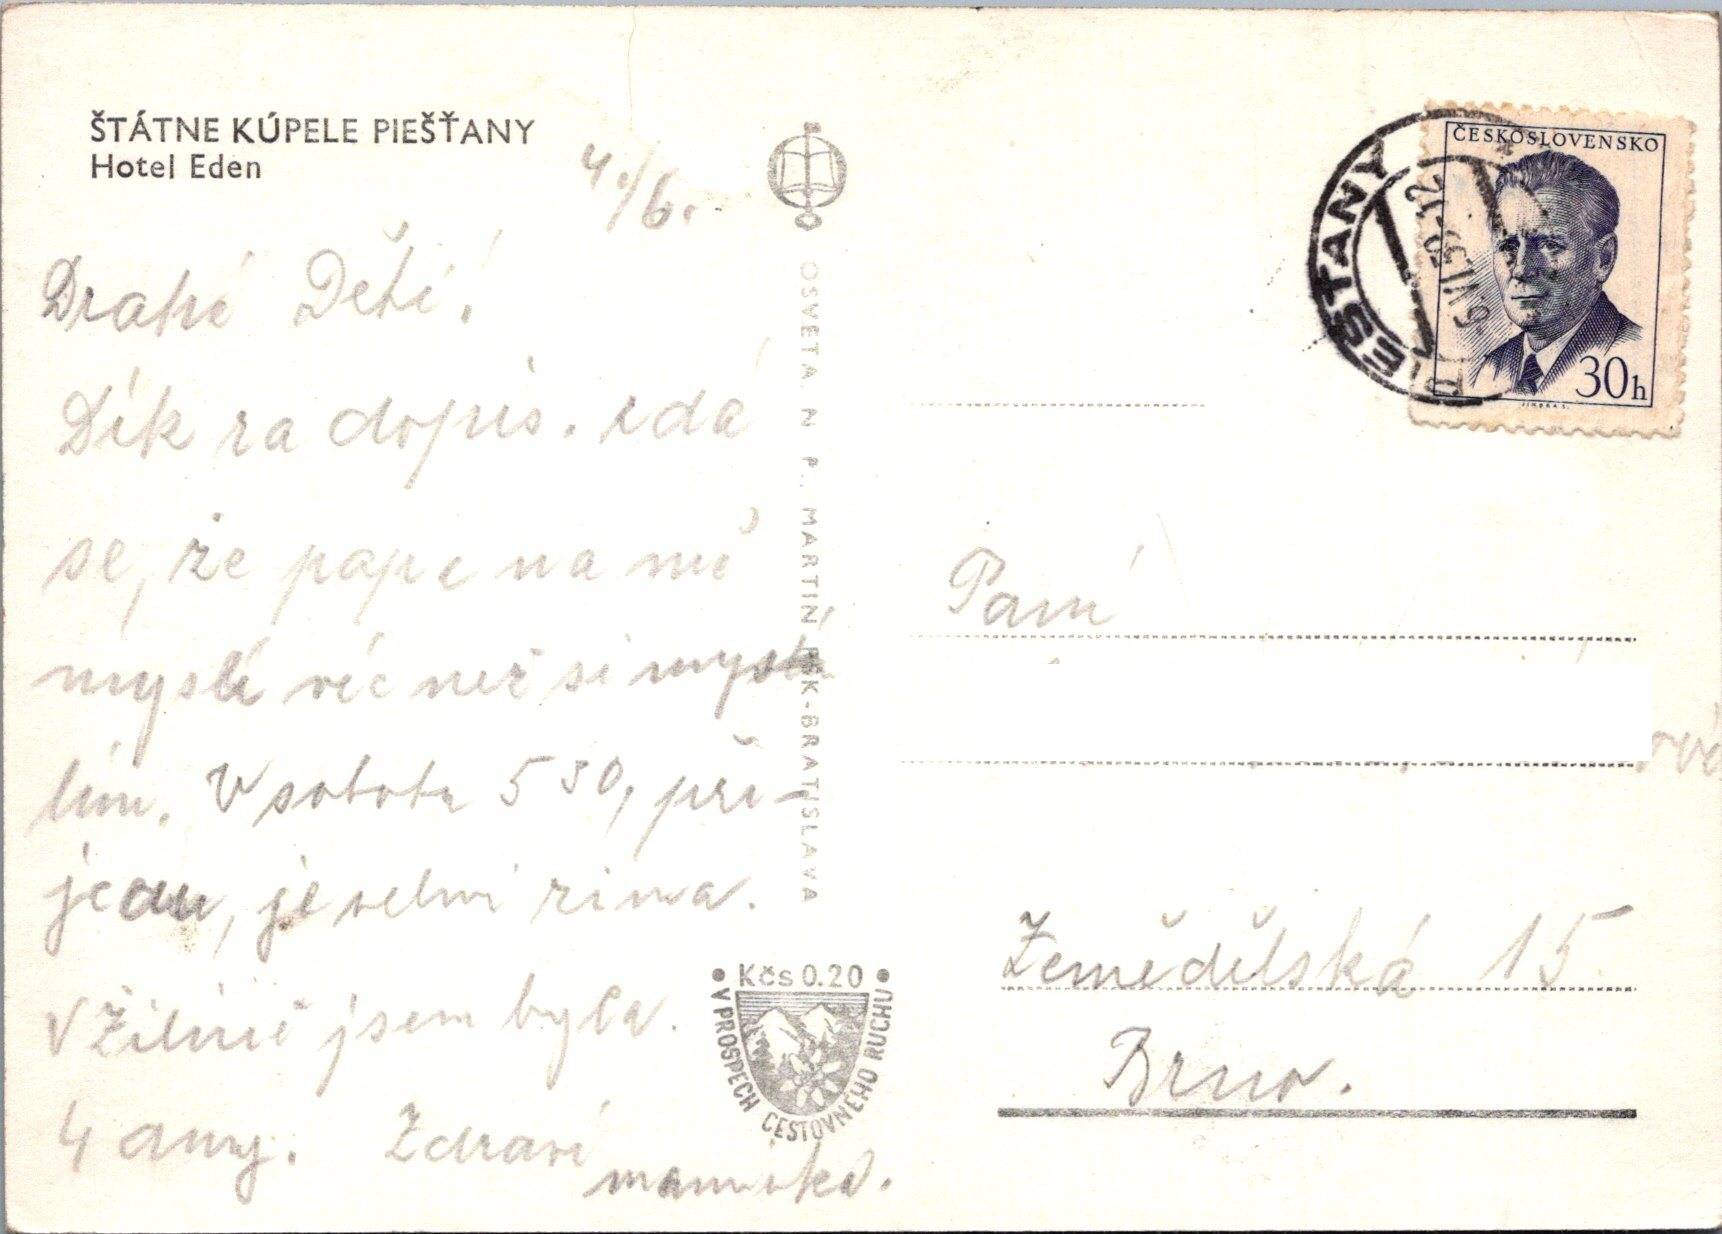 ŠTÁTNE KÚPELE PIEŠŤANY
Hotel Eden
4./6.
Drahé Děti,
Dík za dopis. zdá
se, že pape na mě
myslí víc než si mysli
lím. V sobotu 5 30, při-
jedu, je velmi zima.
v Žilině jsem byla.
4 dny. Zdraví
maminka.
OSVETA N. P., MARTIN BRATISLAVA
Kčs 0.20
V PROSPECH CESTOVNÉHO RUCHU
PIEŠŤANY
ČESKOSLOVENSKO
30h
Paní
ová
Zemědělská 15
Brno.